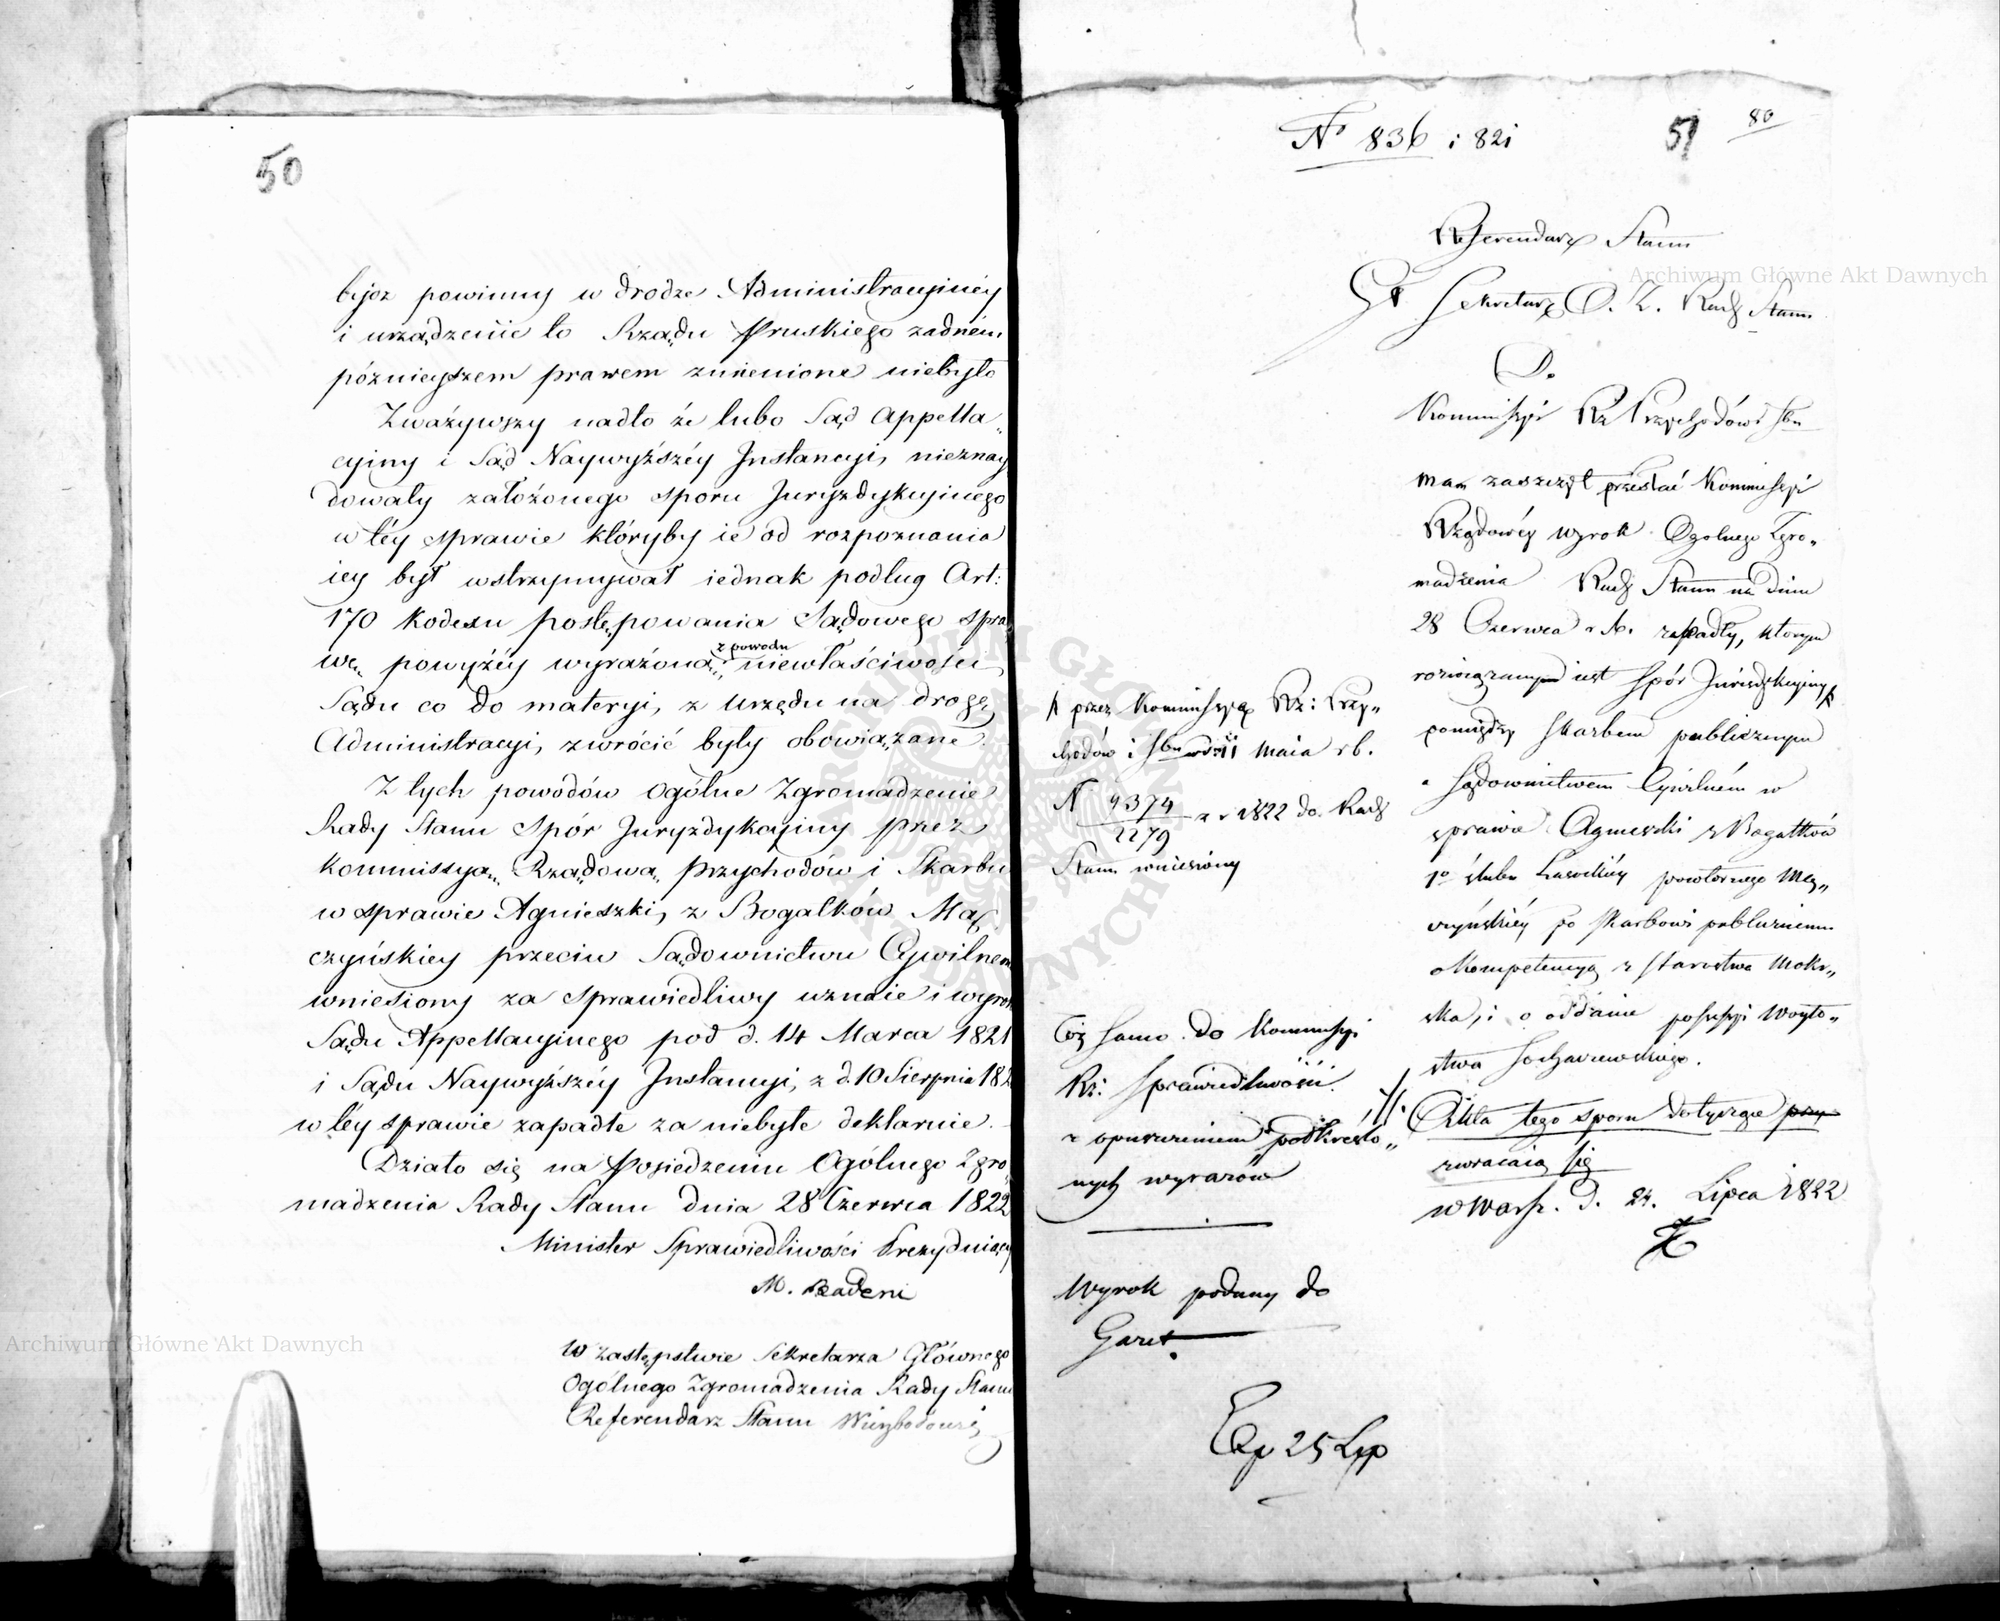 50
bydź powinny w drodze Administracyiney
i urządzenie to Rządu Pruskiego żadném
późnieyszem prawem zmienione niebyło
Zważywszy nadto że lubo Sąd Appella„
cyiny i Sąd Naywyższéy Instancyi, nieznay
dowały założonego sporu Juryzdykcyinego
w téy sprawie któryby ie od rozpoznania
iey był wstrzymywał iednak podług Art:
170 Kodexu postępowania Sądowego spra
wę powyżéy wyrażoną z powodu niewłaściwości
Sądu co do materyi, z urzędu na drogę
Administracyi, zwrócić były obowiązane.
Z tych powodów Ogólne Zgromadzenie
Rady Stanu Spór Juryzdykcyiny przez
Kommissyą Rządową Przychodów i Skarbu
w sprawie Agnieszki, z Bogatków Mą
czyńskiey przeciw Sądownictwu Cywilnem
wniesiony za sprawiedliwy uznaie i wyrok
Sądu Appellacyinego pod d. 14 Marca 1821
i Sądu Naywyższéy Instancyi, z d. 10 Sierpnia 182
w téy sprawie zapadłe za niebyłe deklaruie.
Działo się na Posiedzeniu Ogólnego Zgro
madzenia Rady Stanu dnia 28 Czerwca 1822
Minister Sprawiedliwości Prezyduiący
M. Badeni
W zastępstwie Sekretarza Głównego
Ogólnego Zgromadzenia Rady Stanu
Referendarz Stanu
Nº 836 i 821
51
80
Referendarz Stanu
Gł Sekretarz O. Z. Rady Stanu
Do
Kommissyi Rz Przychodów i Sbu
Mam zaszczyt przesłać Kommissyi
Rządowéy wyrok Ogolnego Zgro„
madzenia Rady Stanu na dniu
28 Czerwca r. b. zapadły, którym
rozwiązanym iest Spór Jurisdykcyiny
pomiędzy Skarbem publicznym
a Sądownictwem Cywilném w
sprawie Agnieszki z Bogatków
1º ślubu Lasockiéy powtórnego Mę„
czyńskiéy po Skarbowi publicznemu
o kompetencyą z Starostwa Mokr„
ska, i o oddanie possessyi Wóyto„
stwa Sochaczewskiego.
Akta tego sporu dotyczące przy
zwracaią się
w Warsz. d. 24. Lipca 1822
przez Kommissyą Rz: Przy„
chodów i Sbu w dniu 11 Maia r b.
N 4374
2279
z r 1822 do Rady
Stanu wniesiony
Toż samo do Kommissyi
Rz: Sprawiedliwości
z opuszczeniem podkreślo„
nych wyrazów
Wyrok podany do
Gazet.
Exp 25 Lip
Archiwum Główne Akt Dawnych
Archiwum Główne Akt Dawnych
ARCHIWUM GŁÓWNE AKT DAWNYCH